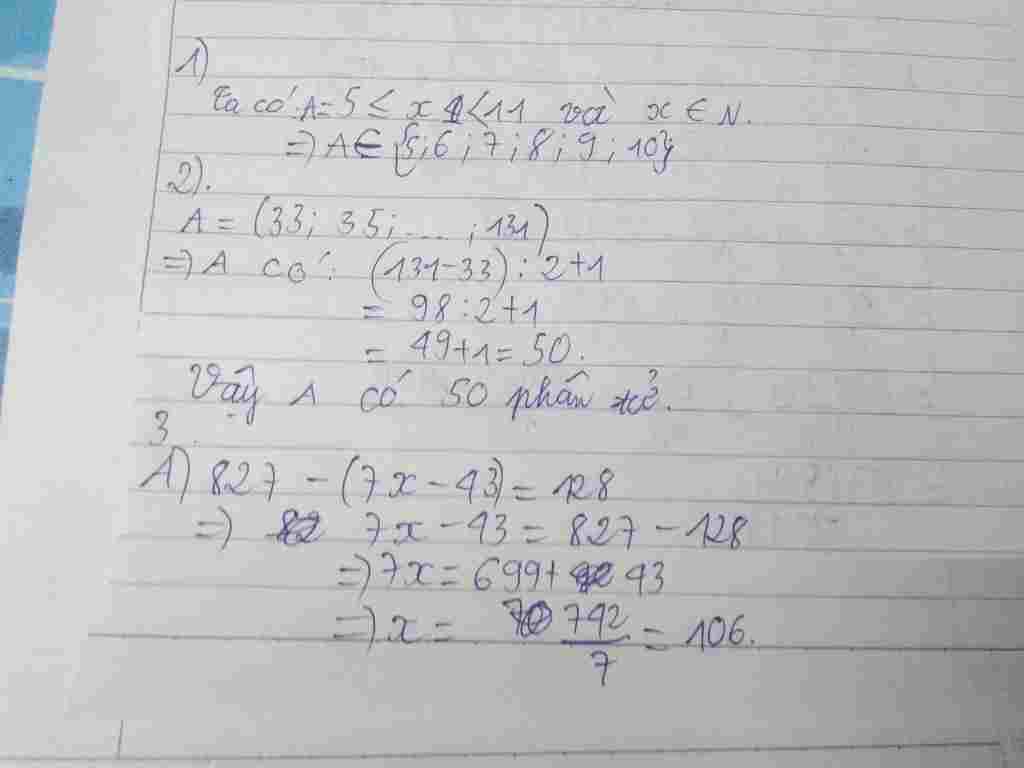 1)
Ta có: A = 5 ≤ x < 11 và x ∈ N.
=) A ∈ {5; 6; 7; 8; 9; 10}
2).
A = (33; 35; ... ; 131)
=) A có: (131-33) : 2+1
= 98 : 2+1
= 49+1 = 50.
Vậy A có 50 phần tử.
3.
A) 827 - (7x - 43) = 128
=) 7x - 43 = 827 - 128
=) 7x = 699 + 43
=) x = 742/7 = 106.